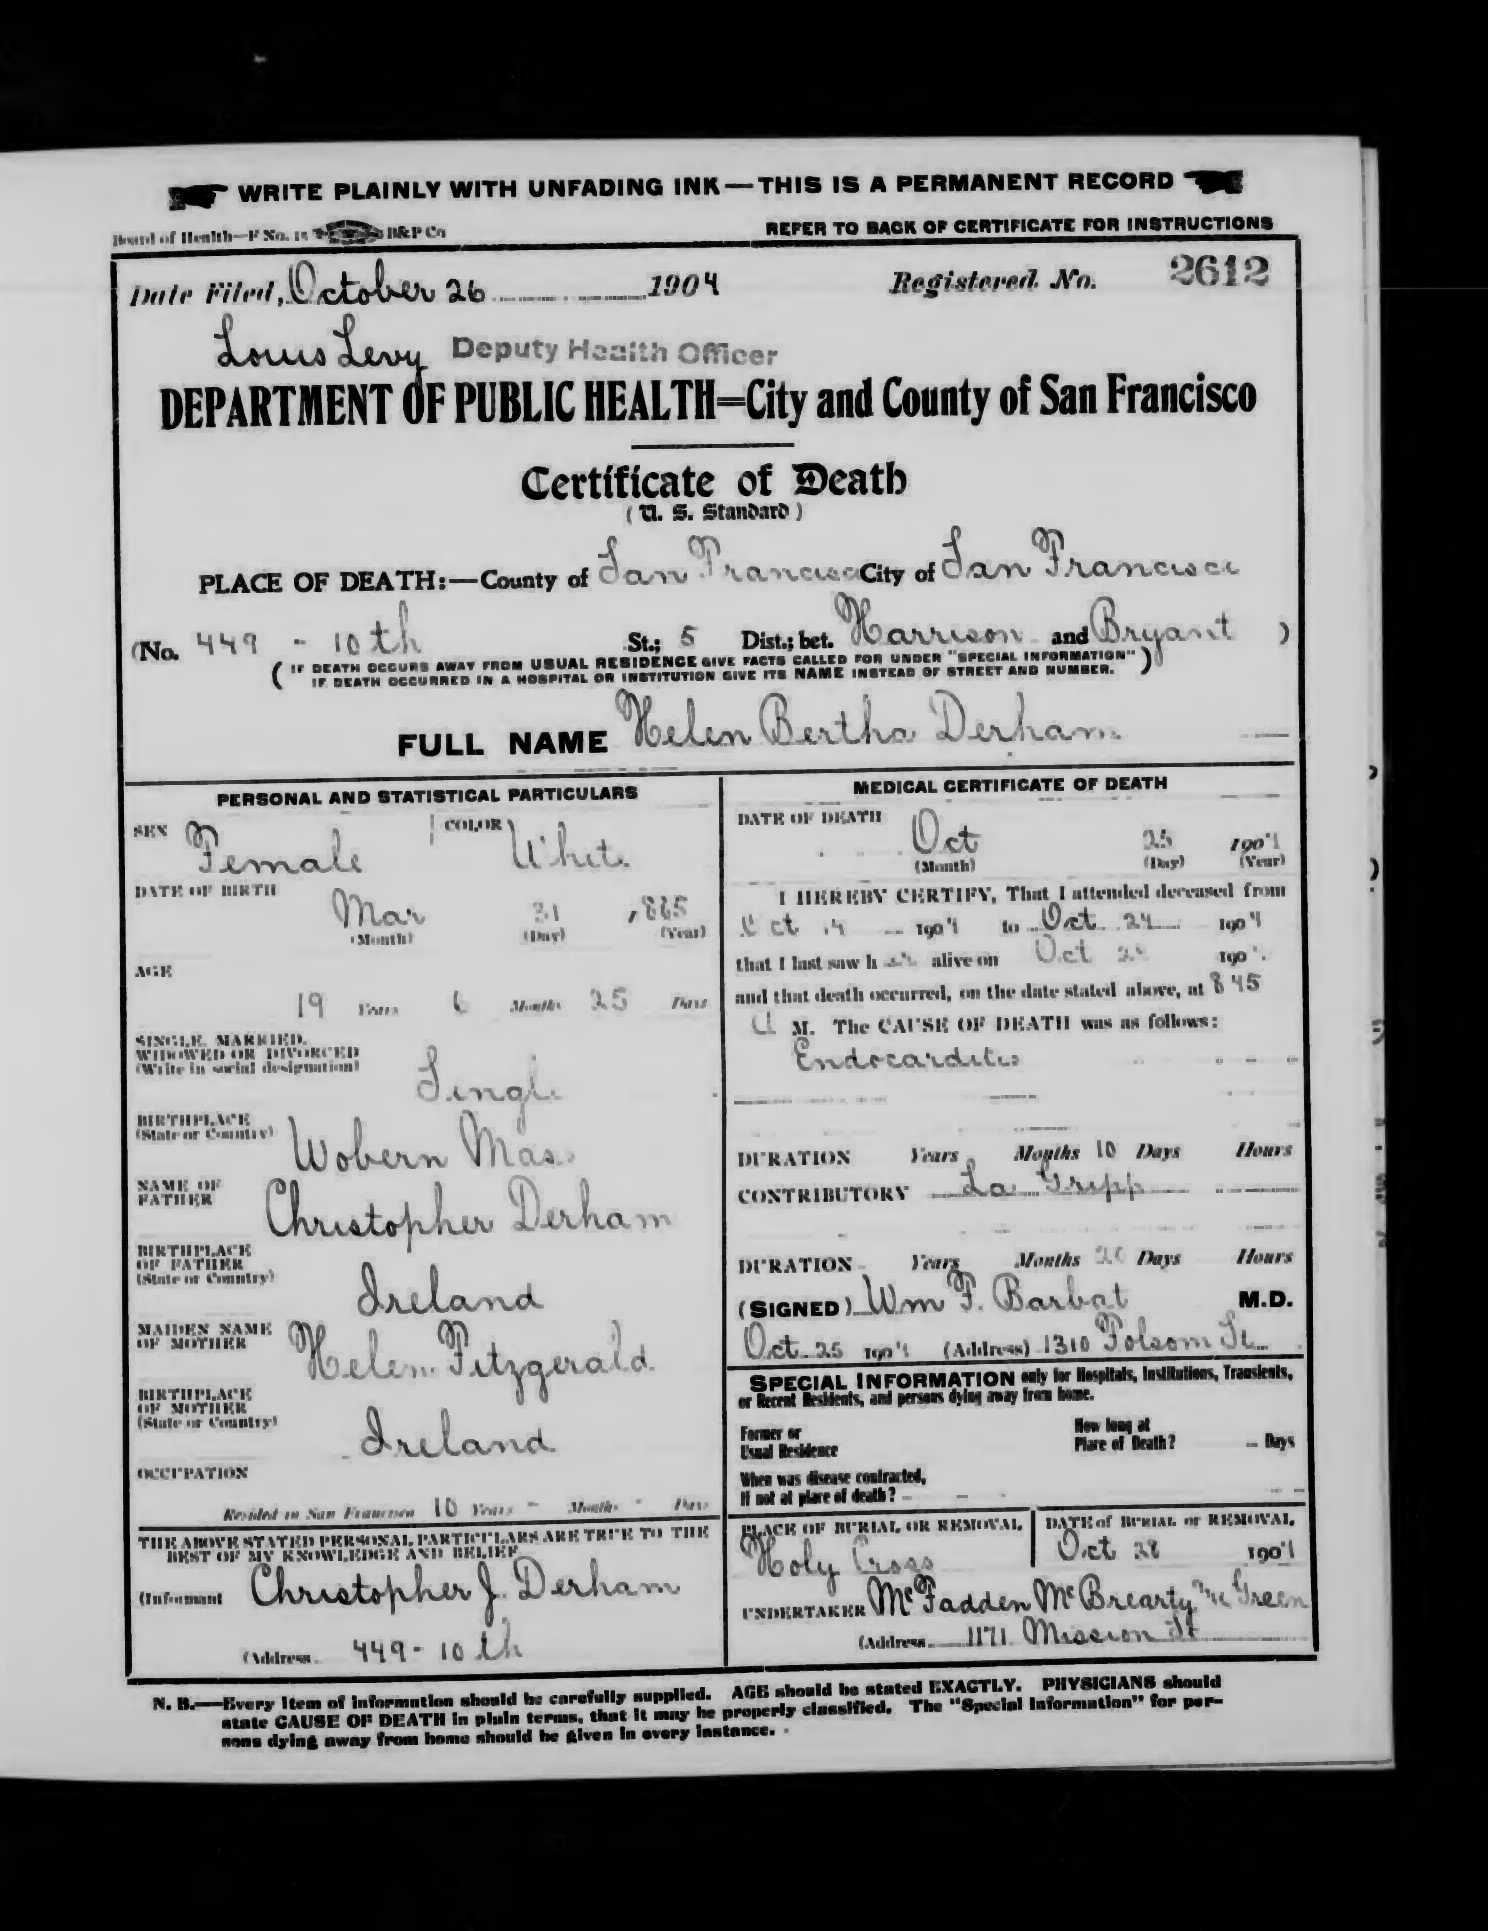 WRITE PLAINLY WITH UNFADING INK—THIS IS A PERMANENT RECORD
Board of Health—F No. 15 B&P Co
REFER TO BACK OF CERTIFICATE FOR INSTRUCTIONS
Date Filed, October 26 1904 Registered No. 2612
Louis Levy Deputy Health Officer
DEPARTMENT OF PUBLIC HEALTH=City and County of San Francisco
Certificate of Death
(U. S. Standard)
PLACE OF DEATH:—County of San Francisco City of San Francisco
(No. 449 - 10th St.; 5 Dist.; bet. Harrison and Bryant )
( IF DEATH OCCURS AWAY FROM USUAL RESIDENCE GIVE FACTS CALLED FOR UNDER "SPECIAL INFORMATION" )
IF DEATH OCCURRED IN A HOSPITAL OR INSTITUTION GIVE ITS NAME INSTEAD OF STREET AND NUMBER.
FULL NAME Helen Bertha Derham
PERSONAL AND STATISTICAL PARTICULARS
SEX Female COLOR White
DATE OF BIRTH
Mar 31 , 885
(Month) (Day) (Year)
AGE
19 Years 6 Months 25 Days
SINGLE, MARRIED,
WIDOWED OR DIVORCED
(Write in social designation)
Single
BIRTHPLACE
(State or Country)
Wobern Mass
NAME OF
FATHER
Christopher Derham
BIRTHPLACE
OF FATHER
(State or Country)
Ireland
MAIDEN NAME
OF MOTHER
Helen Fitzgerald
BIRTHPLACE
OF MOTHER
(State or Country)
Ireland
OCCUPATION
Resided in San Francisco 10 Years - Months - Days
THE ABOVE STATED PERSONAL PARTICULARS ARE TRUE TO THE
BEST OF MY KNOWLEDGE AND BELIEF
(Informant Christopher J. Derham
(Address 449 - 10th
MEDICAL CERTIFICATE OF DEATH
DATE OF DEATH
Oct 25 1904
(Month) (Day) (Year)
I HEREBY CERTIFY, That I attended deceased from
Oct 1904 to Oct 24 1904
that I last saw h alive on Oct 190
and that death occurred, on the date stated above, at 8 45
M. The CAUSE OF DEATH was as follows:
Endocarditis
DURATION Years Months 10 Days Hours
CONTRIBUTORY La Gripp
DURATION Years Months 20 Days Hours
(SIGNED) Wm F. Barbat M.D.
Oct 25 1904 (Address) 1310 Folsom St
SPECIAL INFORMATION only for Hospitals, Institutions, Transients,
or Recent Residents, and persons dying away from home.
Former or
Usual Residence
How long at
Place of Death? Days
When was disease contracted,
If not at place of death?
PLACE OF BURIAL OR REMOVAL
Holy Cross
DATE of BURIAL or REMOVAL
Oct 28 1904
UNDERTAKER McFadden McBrearty Mc Green
(Address 1171 Mission St
N. B.—Every item of information should be carefully supplied. AGE should be stated EXACTLY. PHYSICIANS should
state CAUSE OF DEATH in plain terms, that it may be properly classified. The "Special Information" for per-
sons dying away from home should be given in every instance.